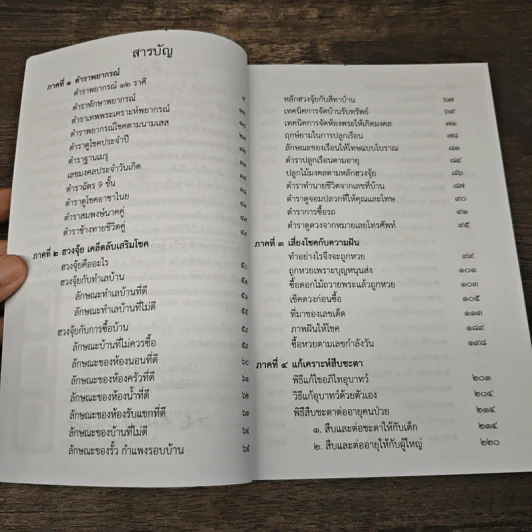 สารบัญ
ภาคที่ ๑ ตำราพยากรณ์
ตำราพยากรณ์ ๑๒ ราศี
ตำราทักษาพยากรณ์
ตำราเทพพระเคราะห์พยากรณ์
ตำราพยากรณ์โชคตามนามเลส
ตำราดูโชคประจำปี
ตำราฐานเมรุ
เลขมงคลประจำวันเกิด
ตำราฉัตร 9 ชั้น
ตำราดูโชคอาชาไนย
ตำราสมพงษ์นาคคู่
ตำราช้างทายชีวิตคู่
ภาคที่ ๒ ฮวงจุ้ย เคล็ดลับเสริมโชค
ฮวงจุ้ยคืออะไร
ฮวงจุ้ยกับทำเลบ้าน
ลักษณะทำเลบ้านที่ดี
ลักษณะทำเลบ้านที่ไม่ดี
ฮวงจุ้ยกับการซื้อบ้าน
ลักษณะบ้านที่ไม่ควรซื้อ
ลักษณะของห้องนอนที่ดี
ลักษณะของห้องครัวที่ดี
ลักษณะของห้องน้ำที่ดี
ลักษณะของห้องรับแขกที่ดี
ลักษณะของบ้านที่ไม่ดี
ลักษณะของรั้ว กำแพงรอบบ้าน
หลักฮวงจุ้ยกับสีทาบ้าน ๖๗
เทคนิคการจัดบ้านรับทรัพย์ ๖๙
เทคนิคการจัดห้องพระให้เกิดมงคล ๗๑
ฤกษ์ยามในการปลูกเรือน ๗๘
ลักษณะของเรือนให้โทษแบบโบราณ ๘๑
ตำราปลูกเรือนตามอายุ ๘๔
ปลูกไม้มงคลตามหลักฮวงจุ้ย ๘๖
ตำราทำนายชีวิตจากเลขที่บ้าน ๘๗
ตำราดูจอมปลวกที่ให้คุณและโทษ ๙๐
ตำราการซื้อรถ ๙๑
ตำราดูดวงจากหมายเลขโทรศัพท์ ๙๕
ภาคที่ ๓ เสี่ยงโชคกับความฝัน
ทำอย่างไรจึงจะถูกหวย ๙๙
ถูกหวยเพราะบุญหนุนส่ง ๑๐๑
ซื้อดอกไม้ถวายพระแล้วถูกหวย ๑๐๓
เช็คดวงก่อนซื้อ ๑๐๕
ที่มาของเลขเด็ด ๑๑๓
ภาพฝันให้โชค ๑๘๙
ซื้อหวยตามเลขกำลังวัน ๑๙๘
ภาคที่ ๔ แก้เคราะห์สืบชะตา
พิธีแก้ไขอภิไทอุบาทว์ ๒๐๑
วิธีแก้อุบาทว์ด้วยตัวเอง ๒๐๔
พิธีสืบชะตาต่ออายุคนป่วย ๒๑๔
๑. สืบและต่อชะตาให้กับเด็ก ๒๑๔
๒. สืบและต่ออายุให้กับผู้ใหญ่ ๒๒๐